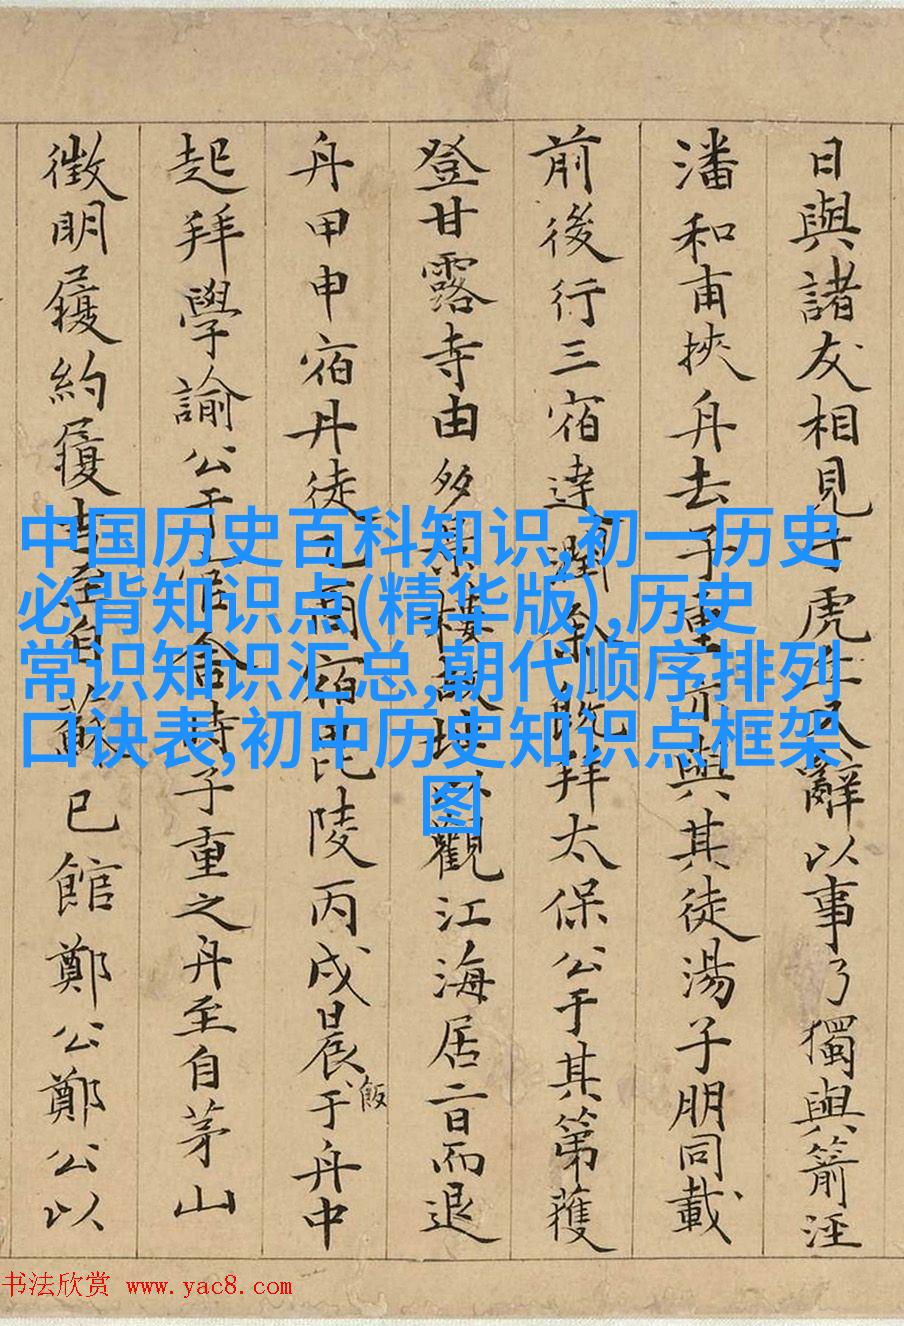 日與諸友相見于虎丘又辭以事乃獨與箭涇
潘和甫挾舟去子重亦與其徒湯子朋同載
前後行三宿達潤拜太保公于其第獲
登甘露寺由多景樓故址以觀江海居二日而退
舟甲申宿丹徒乙酉宿毘陵丙戌晨飯于舟中
起拜學諭公于官舍時子重之舟至自茅山
徵明履約履吉至自蘇已館鄭公鄭公以
中国历史百科知识,初一历史
必背知识点(精华版),历史
常识知识汇总,朝代顺序排列
口诀表,初中历史知识点框架
图
书法欣赏 www.yac8.com